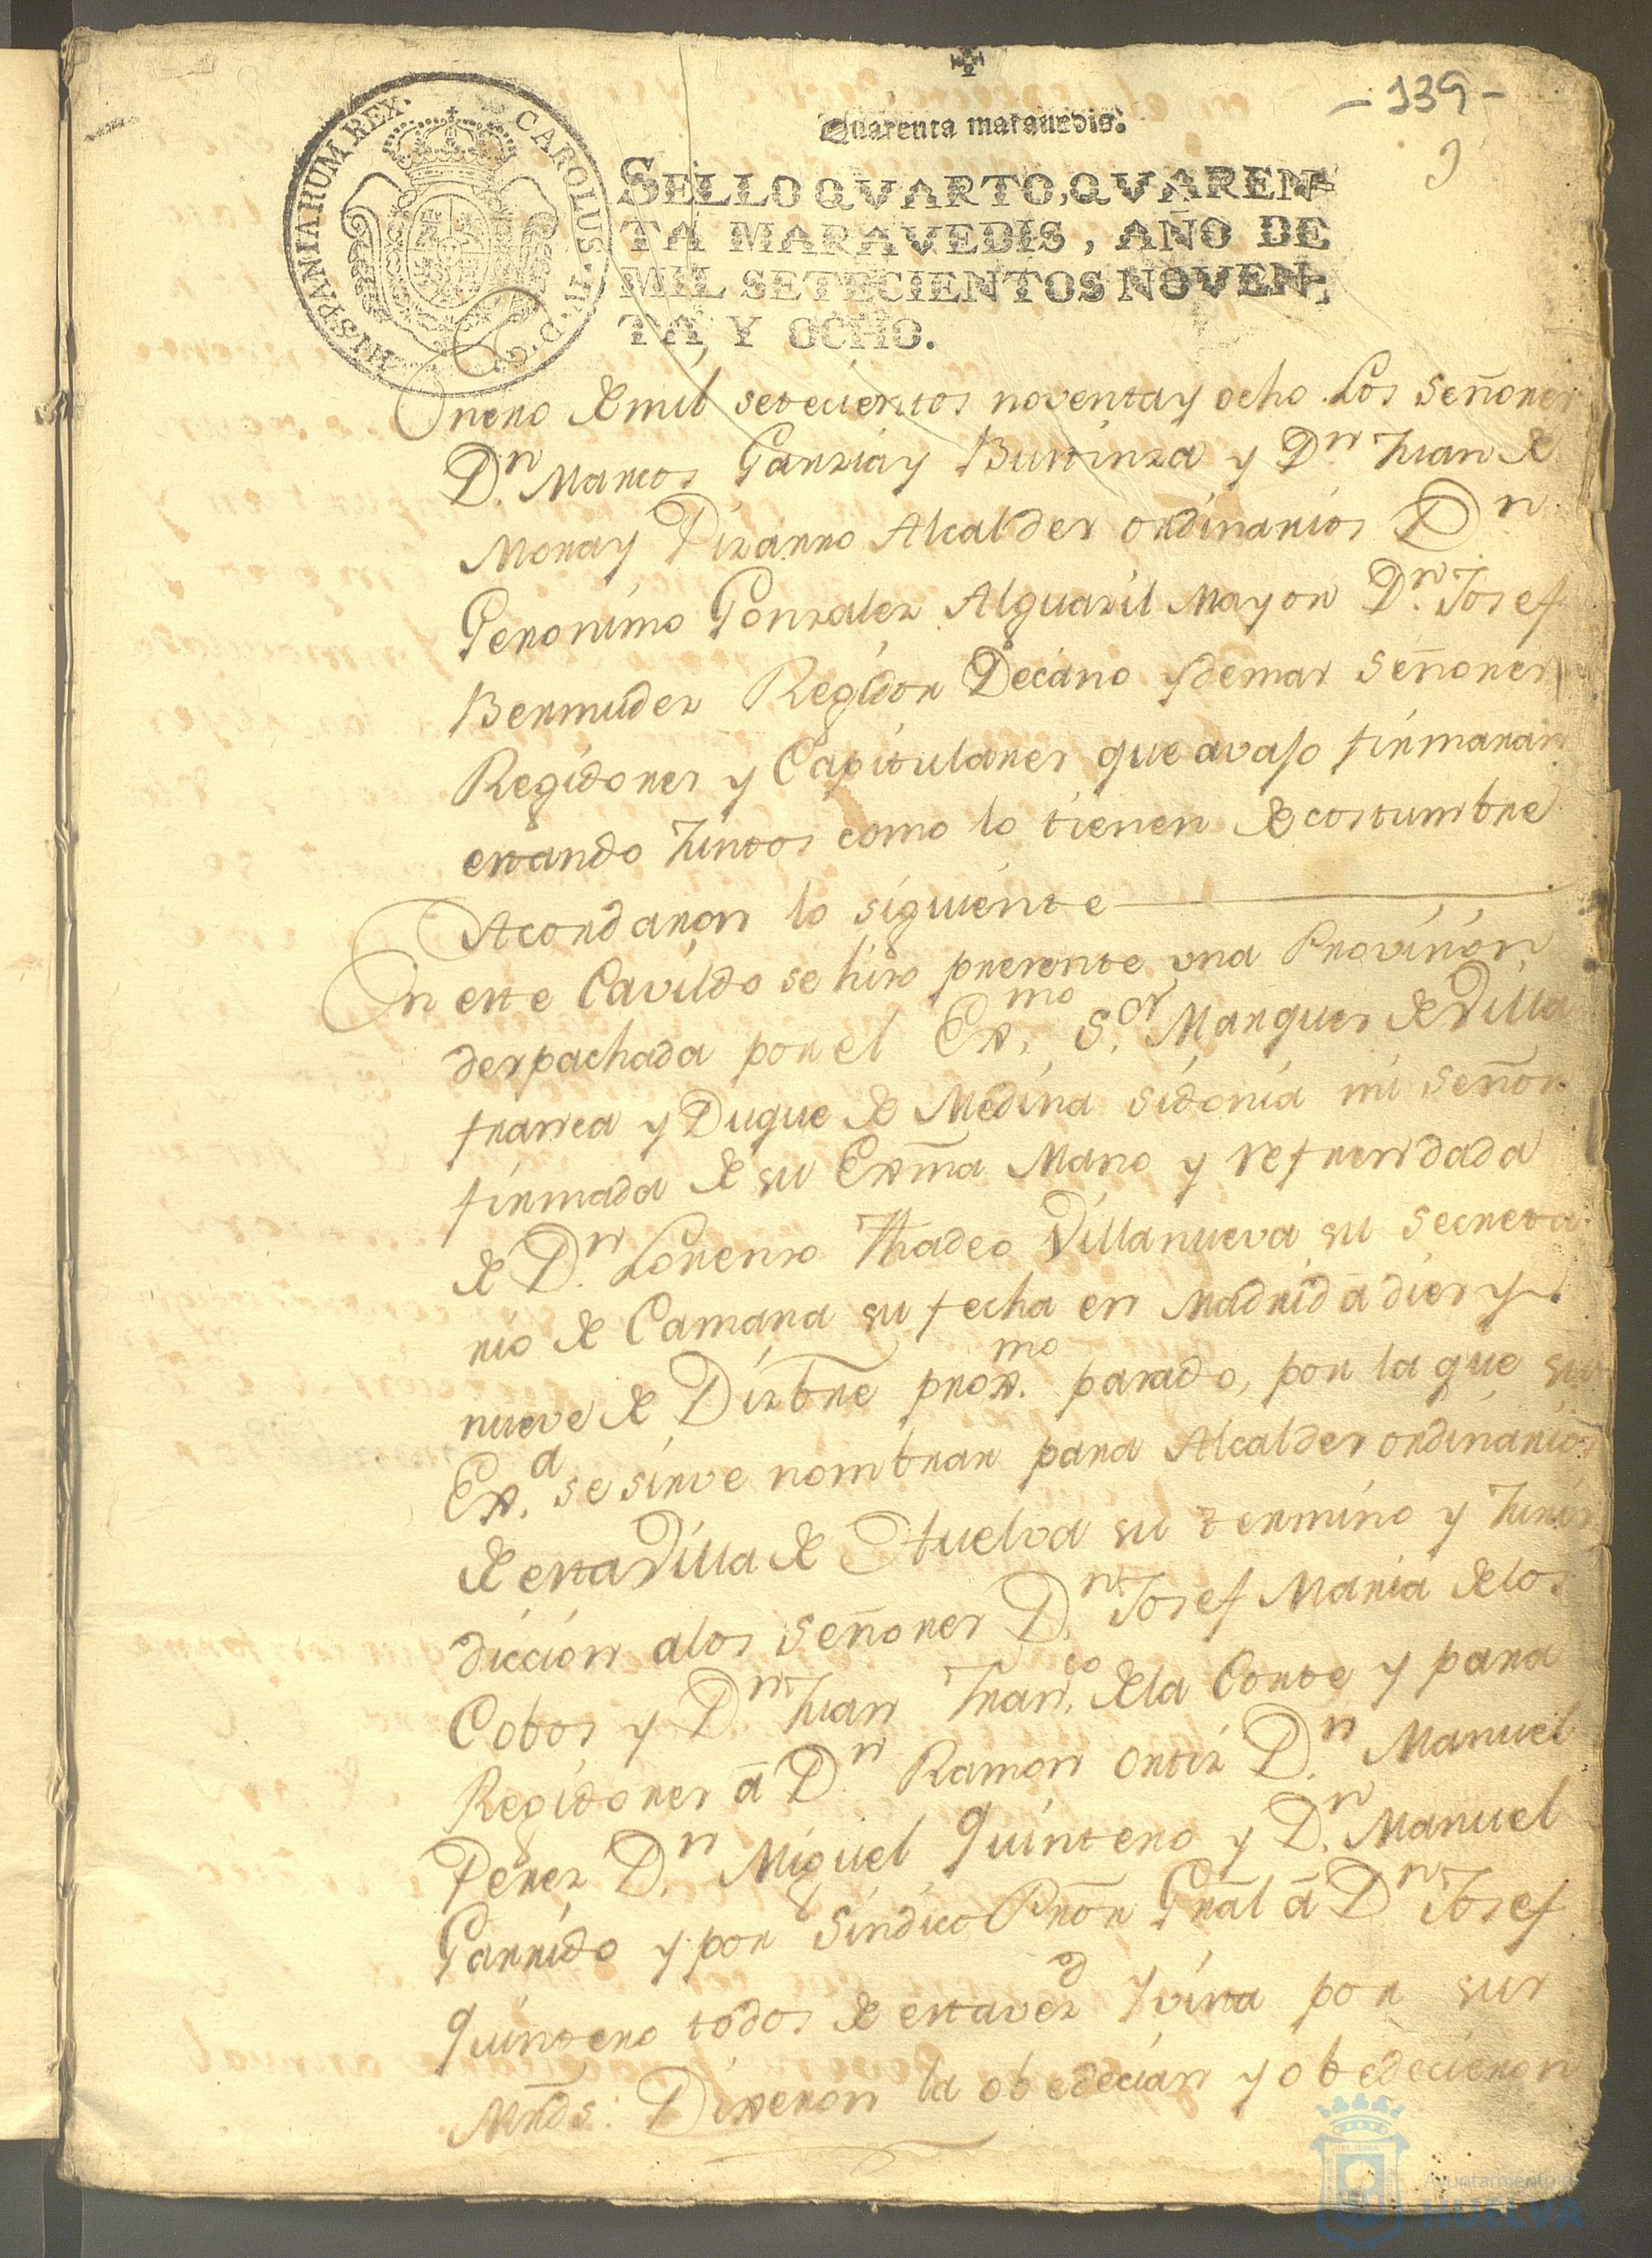 - 139 -
Quarenta marauedis.
SELLO QVARTO, QVAREN-
TA MARAVEDIS, AÑO DE
MIL SETECIENTOS NOVEN-
TA, Y OCHO.
CAROLUS. IV. D. G. HISPANIARUM REX.
Enero de mil setecientos noventa y ocho Los Señores
Dn. Marcos Garzia y y Dn. Juan de
Mora y Pizarro Alcaldes ordinarios Dn.
Geronimo Gonzalez Alguazil Mayor Dn. Josef
Bermudez Regidor Decano y demas Señores
Regidores y Capitulares que avajo firmaran
estando Juntos como lo tienen de costumbre
Acordaron lo siguiente
En este Cavildo se hizo presente una Provision
despachada por el Exmo. Sor. Marques de Villa
franca y Duque de Medina Sidonia mi Señor
firmada de su Exma Mano y refrendada
de Dn. Lorenzo Thadeo Villanueva su Secreta
rio de Camara su fecha en Madrid a diez y
nueve de Dizbre proxmo. pasado, por la que su
Exa. se sirve nombrar para Alcaldes ordinarios
de esta Villa de Huelva su termino y Juris
diccion a los Señores Dn. Josef Maria de los
Cobos y Dn. Juan Franco. de la Corte y para
Regidores a Dn. Ramon Ortiz Dn. Manuel
Perez Dn. Miguel Quintero y Dn. Manuel
Garrido y por Sindico Pror Gral a Dn. Josef
Quintero todos de esta vezd y vista por sus
Mrds. Dixeron la obedecian y obedecieron
Ayuntamiento de
HUELVA